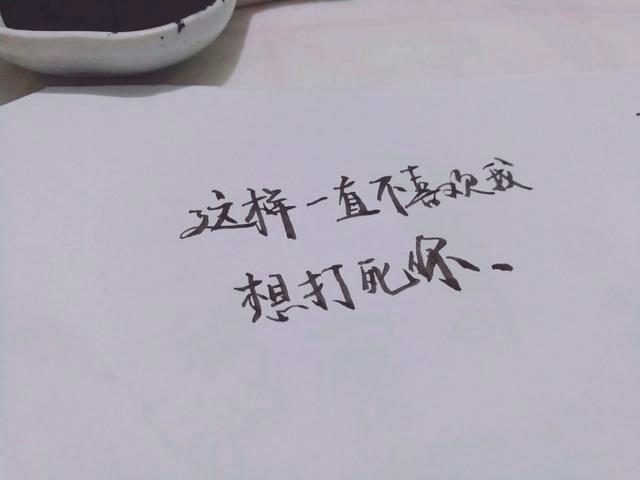 这样一直不喜欢我
想打死你..